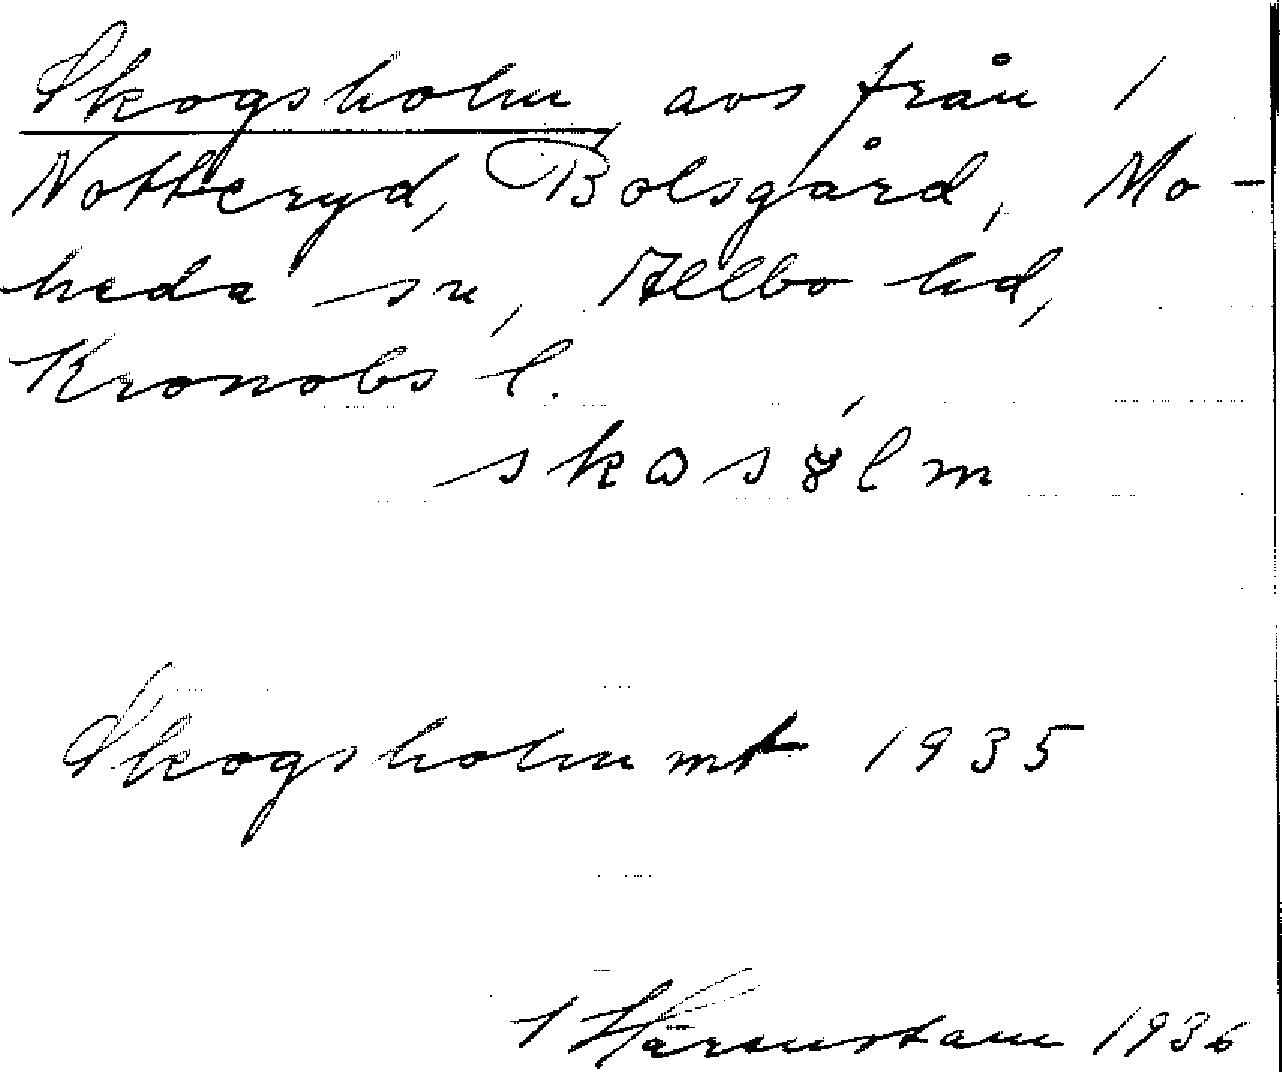 Skogsholm avs från 1
Notteryd, Bolsgård, Mo-
heda sn, Allbo hd,
Kronobs l.
Skogsholm mt 1935
1936